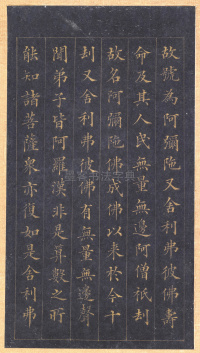 故號為阿彌陁又舍利弗彼佛壽
命及其人民無量無邊阿僧祇刧
故名阿彌陁佛成佛以来於今十
刧又舍利弗彼佛有無量無邊聲
聞弟子皆阿羅漢非是筭數之所
能知諸菩薩衆亦復如是舍利弗